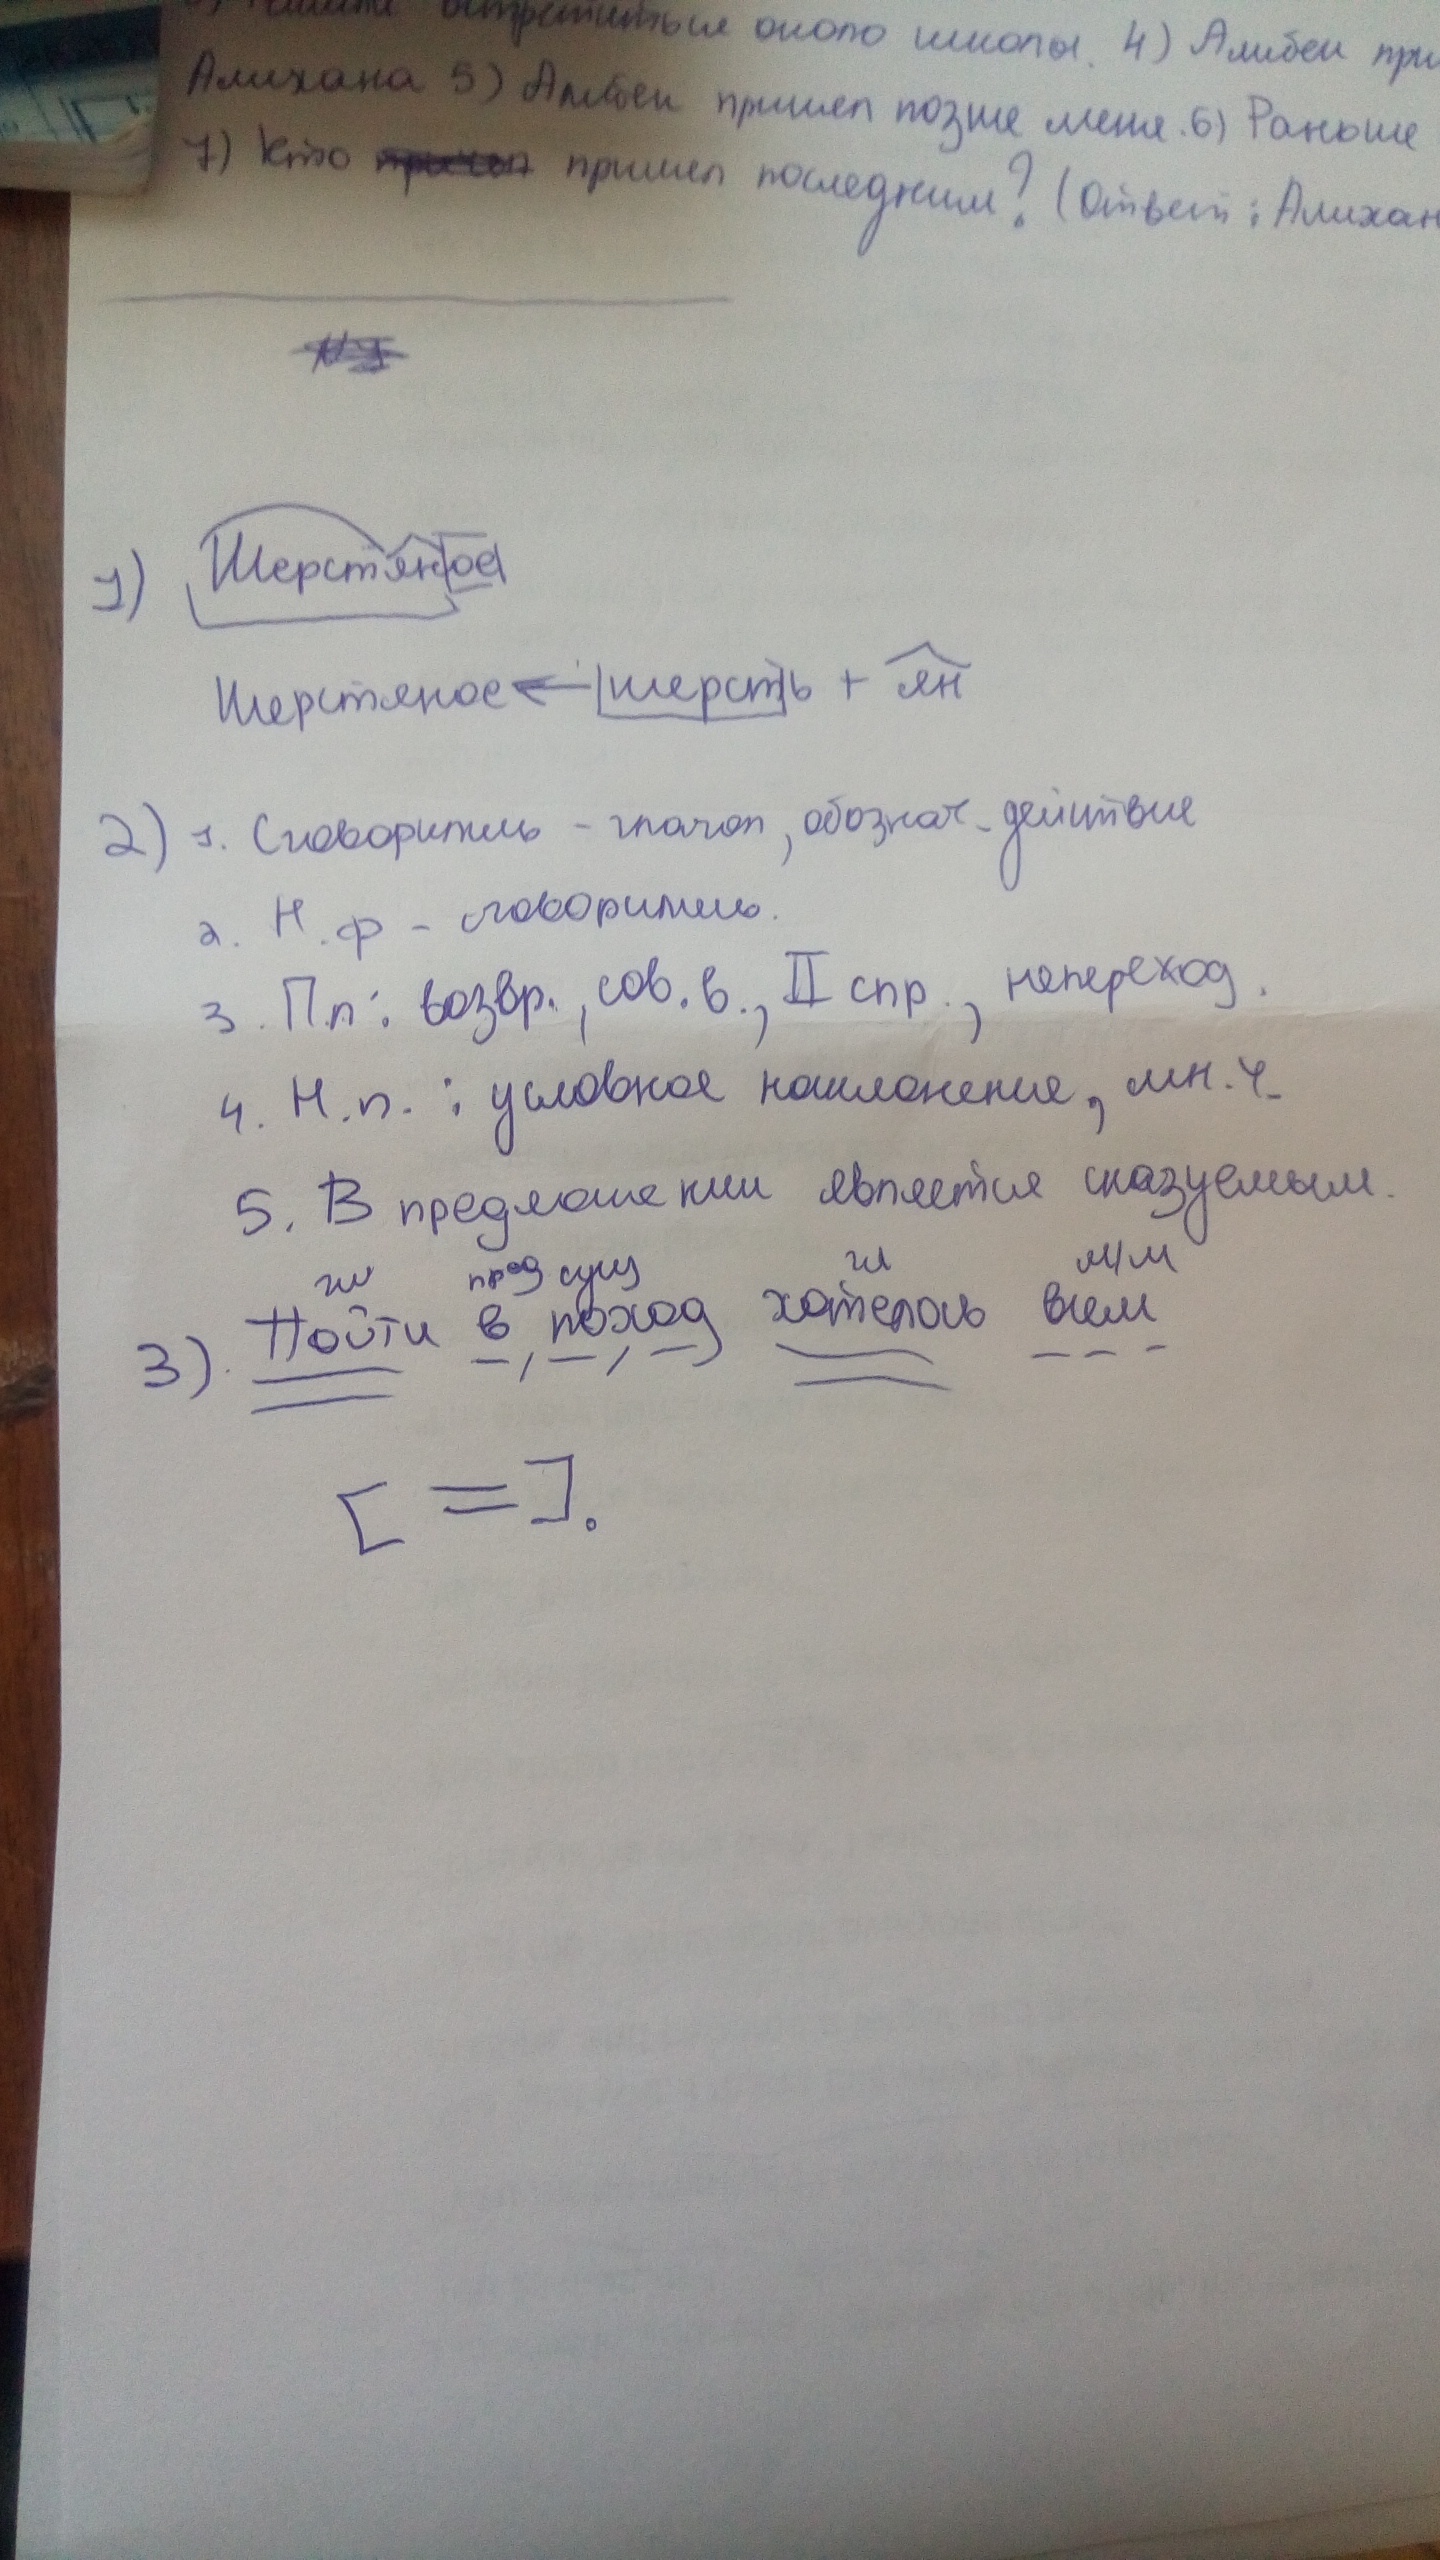 встретиться около школы. 4) Алибек при
Алихана 5) Алибек пришел позже меня. 6) Раньше
7) Кто пришел последним? (Ответ: Алихан
1) Шерстяное
Шерстяное ← шерсть + ян
2) 1. Сговорились - глагол, обознач. действие
2. Н.ф - сговорились.
3. П.п: возвр., сов. в., II спр., непереход.
4. Н.п.: условное наклонение, мн.ч.
5. В предложении является сказуемым.
гл пред сущ гл м/м
3). Пойти в поход хотелось всем
[ = ].